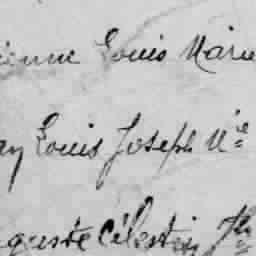 ienne Louis Marie
ay Louis Joseph Mie
uguste Célestin Jh